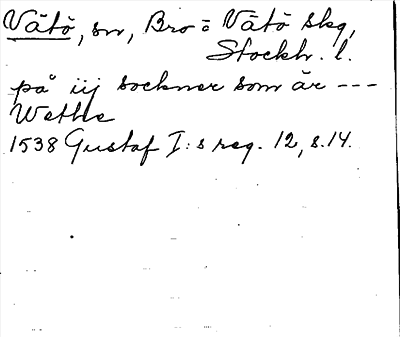 Vätö, sn, Bro o Vätö skg,
Stockh. l.
på iij sockner som är ---
Wethe
1538 Gustaf I:s reg. 12, s.14.